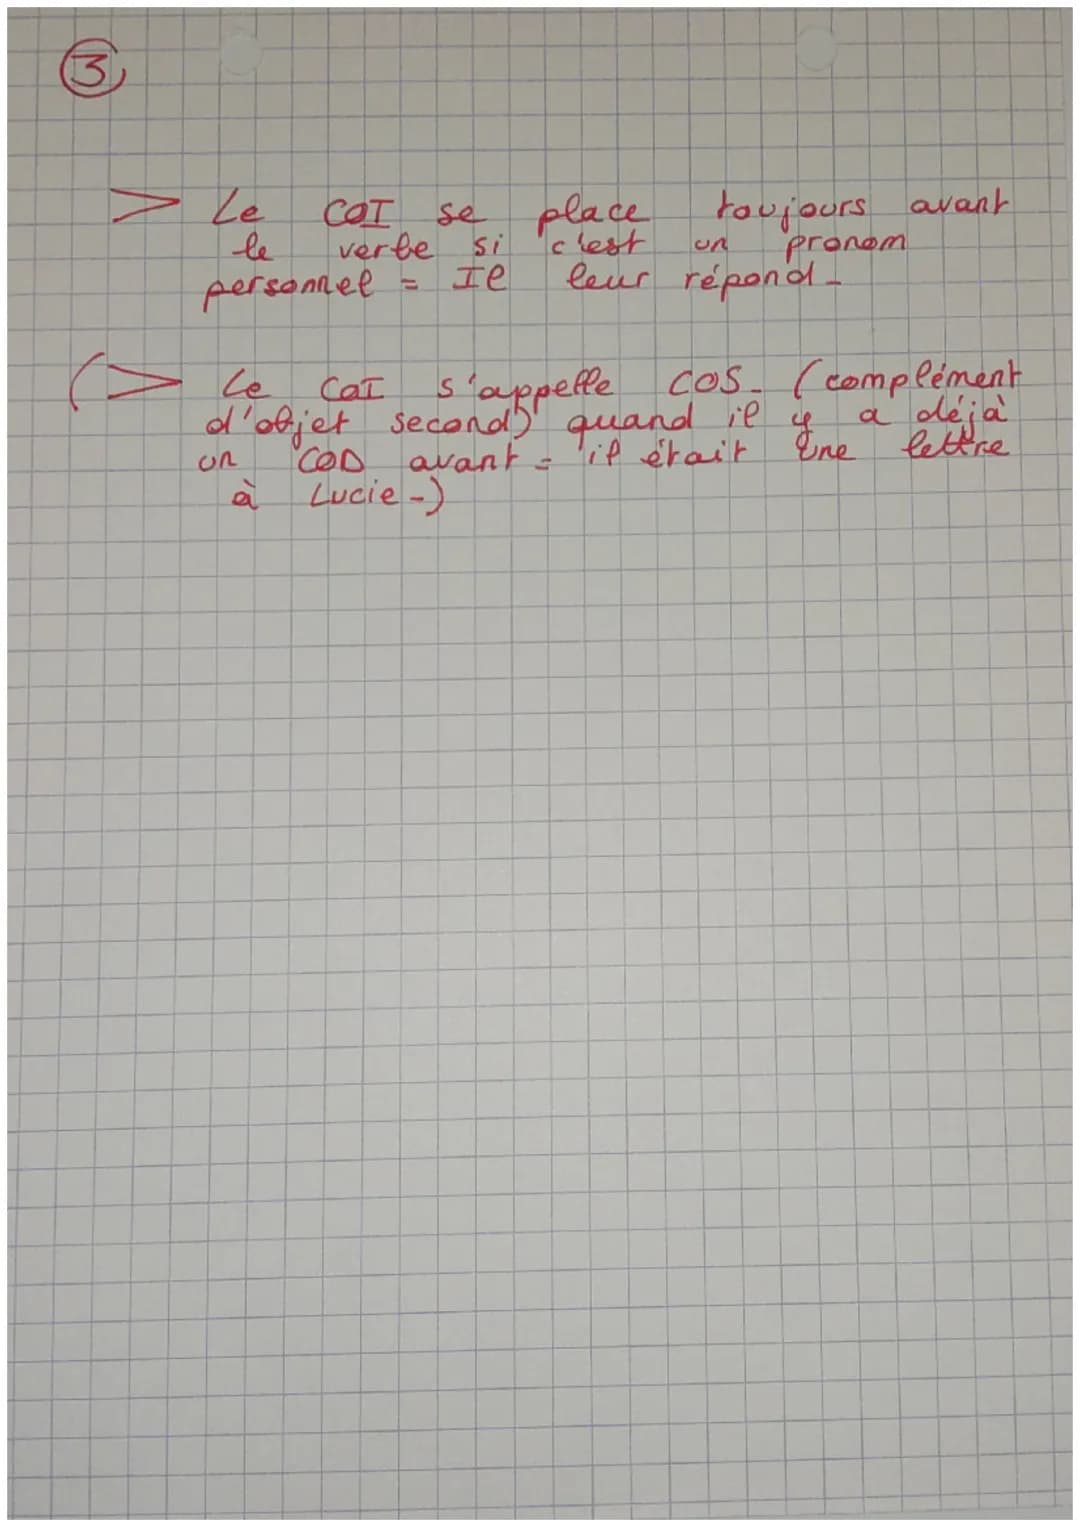 ③
> Le COI se place toujours avant
le verbe si c'est un pronom
personnel = Il leur répond.
(> Le COI s'appelle COS. (complément
d'objet second) quand il y a déjà
un COD avant = il était une lettre
à Lucie.)